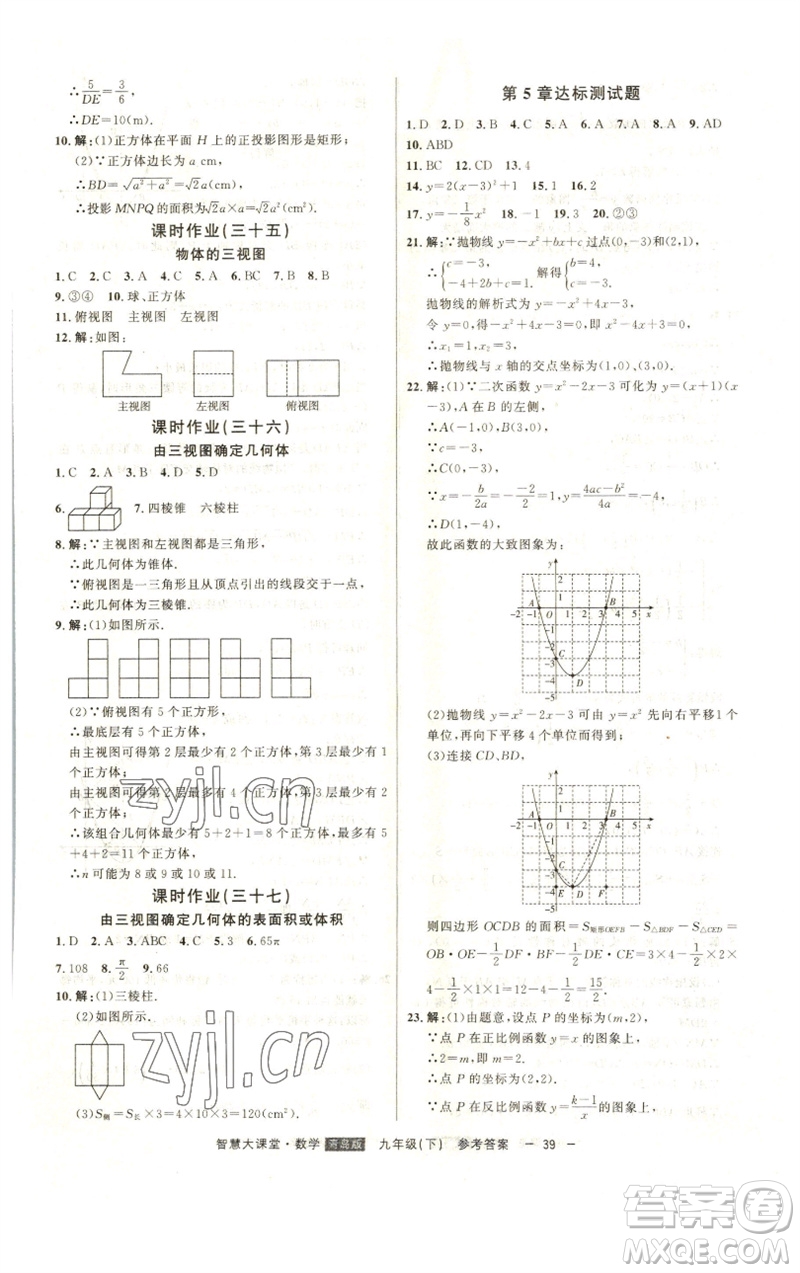 ∴5/DE=3/6
∴DE=10(m).
10.解:(1)正方体在平面 H 上的正投影图形是矩形;
(2)∵正方体边长为 a cm,
∴BD=√(a²+a²)=√2a(cm),
∴投影 MNPQ 的面积为√2a×a=√2a²(cm²).
课时作业(三十五)
物体的三视图
1.C 2.C 3.A 4.C 5.A 6.BC 7.B 8.A
9.③④ 10.球、正方体
11.俯视图 主视图 左视图
12.解:如图:
主视图 左视图 俯视图
课时作业(三十六)
由三视图确定几何体
1.C 2.A 3.B 4.D 5.D
6. 7.四棱锥 六棱柱
8.解:∵主视图和左视图都是三角形,
∴此几何体为锥体.
∵俯视图是一三角形且从顶点引出的线段交于一点,
∴此几何体为三棱锥.
9.解:(1)如图所示.
(2)∵俯视图有 5 个正方形,
∴最底层有 5 个正方体,
由主视图可得第 2 层最少有 2 个正方体,第 3 层最少有 1
个正方体;
由主视图可得第 2 层最多有 4 个正方体,第 3 层最多有 2
个正方体;
∴该组合几何体最少有 5+2+1=8 个正方体,最多有 5
+4+2=11 个正方体.
∴n 可能为 8 或 9 或 10 或 11.
课时作业(三十七)
由三视图确定几何体的表面积或体积
1.D 2.A 3.ABC 4.C 5.3 6.65π
7.108 8.π/2 9.66
10.解:(1)三棱柱.
(2)如图所示.
(3)S侧=S长×3=4×10×3=120(cm²).
第 5 章达标测试题
1.D 2.D 3.B 4.C 5.A 6.A 7.A 8.A 9.AD
10.ABD
11.BC 12.CD 13.4
14.y=2(x-3)²+1 15.1 16.2
17.y=-1/8x² 18.-1 19.3 20.②③
21.解:∵抛物线 y=-x²+bx+c 过点(0,-3)和(2,1),
抛物线的解析式为 y=-x²+4x-3,
令 y=0,得-x²+4x-3=0,即 x²-4x+3=0,
∴抛物线与 x 轴的交点坐标为(1,0),(3,0).
22.解:(1)∵二次函数 y=x²-2x-3 可化为 y=(x+1)(x
-3),A 在 B 的左侧,
∴A(-1,0),B(3,0),
∴C(0,-3),
∵x=-b/2a=-(-2)/2=1,y=(4ac-b²)/4a=-4,
∴D(1,-4),
故此函数的大致图象为:
y 2 1 A B -2 -1 O 1 2 3 4 5 x -1 -2 -3 C -4 D -5
(2)抛物线 y=x²-2x-3 可由 y=x² 先向右平移1个
单位,再向下平移 4 个单位而得到;
(3)连接 CD、BD,
y 2 1 A B -2 -1 O 1 2 3 4 5 x -1 -2 -3 C -4 E D F -5
则四边形 OCDB 的面积=S矩形OEFB-S△BDF-S△CED=
OB·OE-1/2DF·BF-1/2DE·CE=3×4-1/2×2×
4-1/2×1×1=12-4-1/2=15/2.
23.解:(1)由题意,设点 P 的坐标为(m,2),
∵点 P 在正比例函数 y=x 的图象上,
∴2=m,即 m=2.
∴点 P 的坐标为(2,2).
∵点 P 在反比例函数 y=(k-1)/x的图象上,
智慧大课堂·数学 青岛版 九年级(下) 参考答案 - 39 -
zyjl.cn
zyjl.cn
答案圈
MXQE.COM